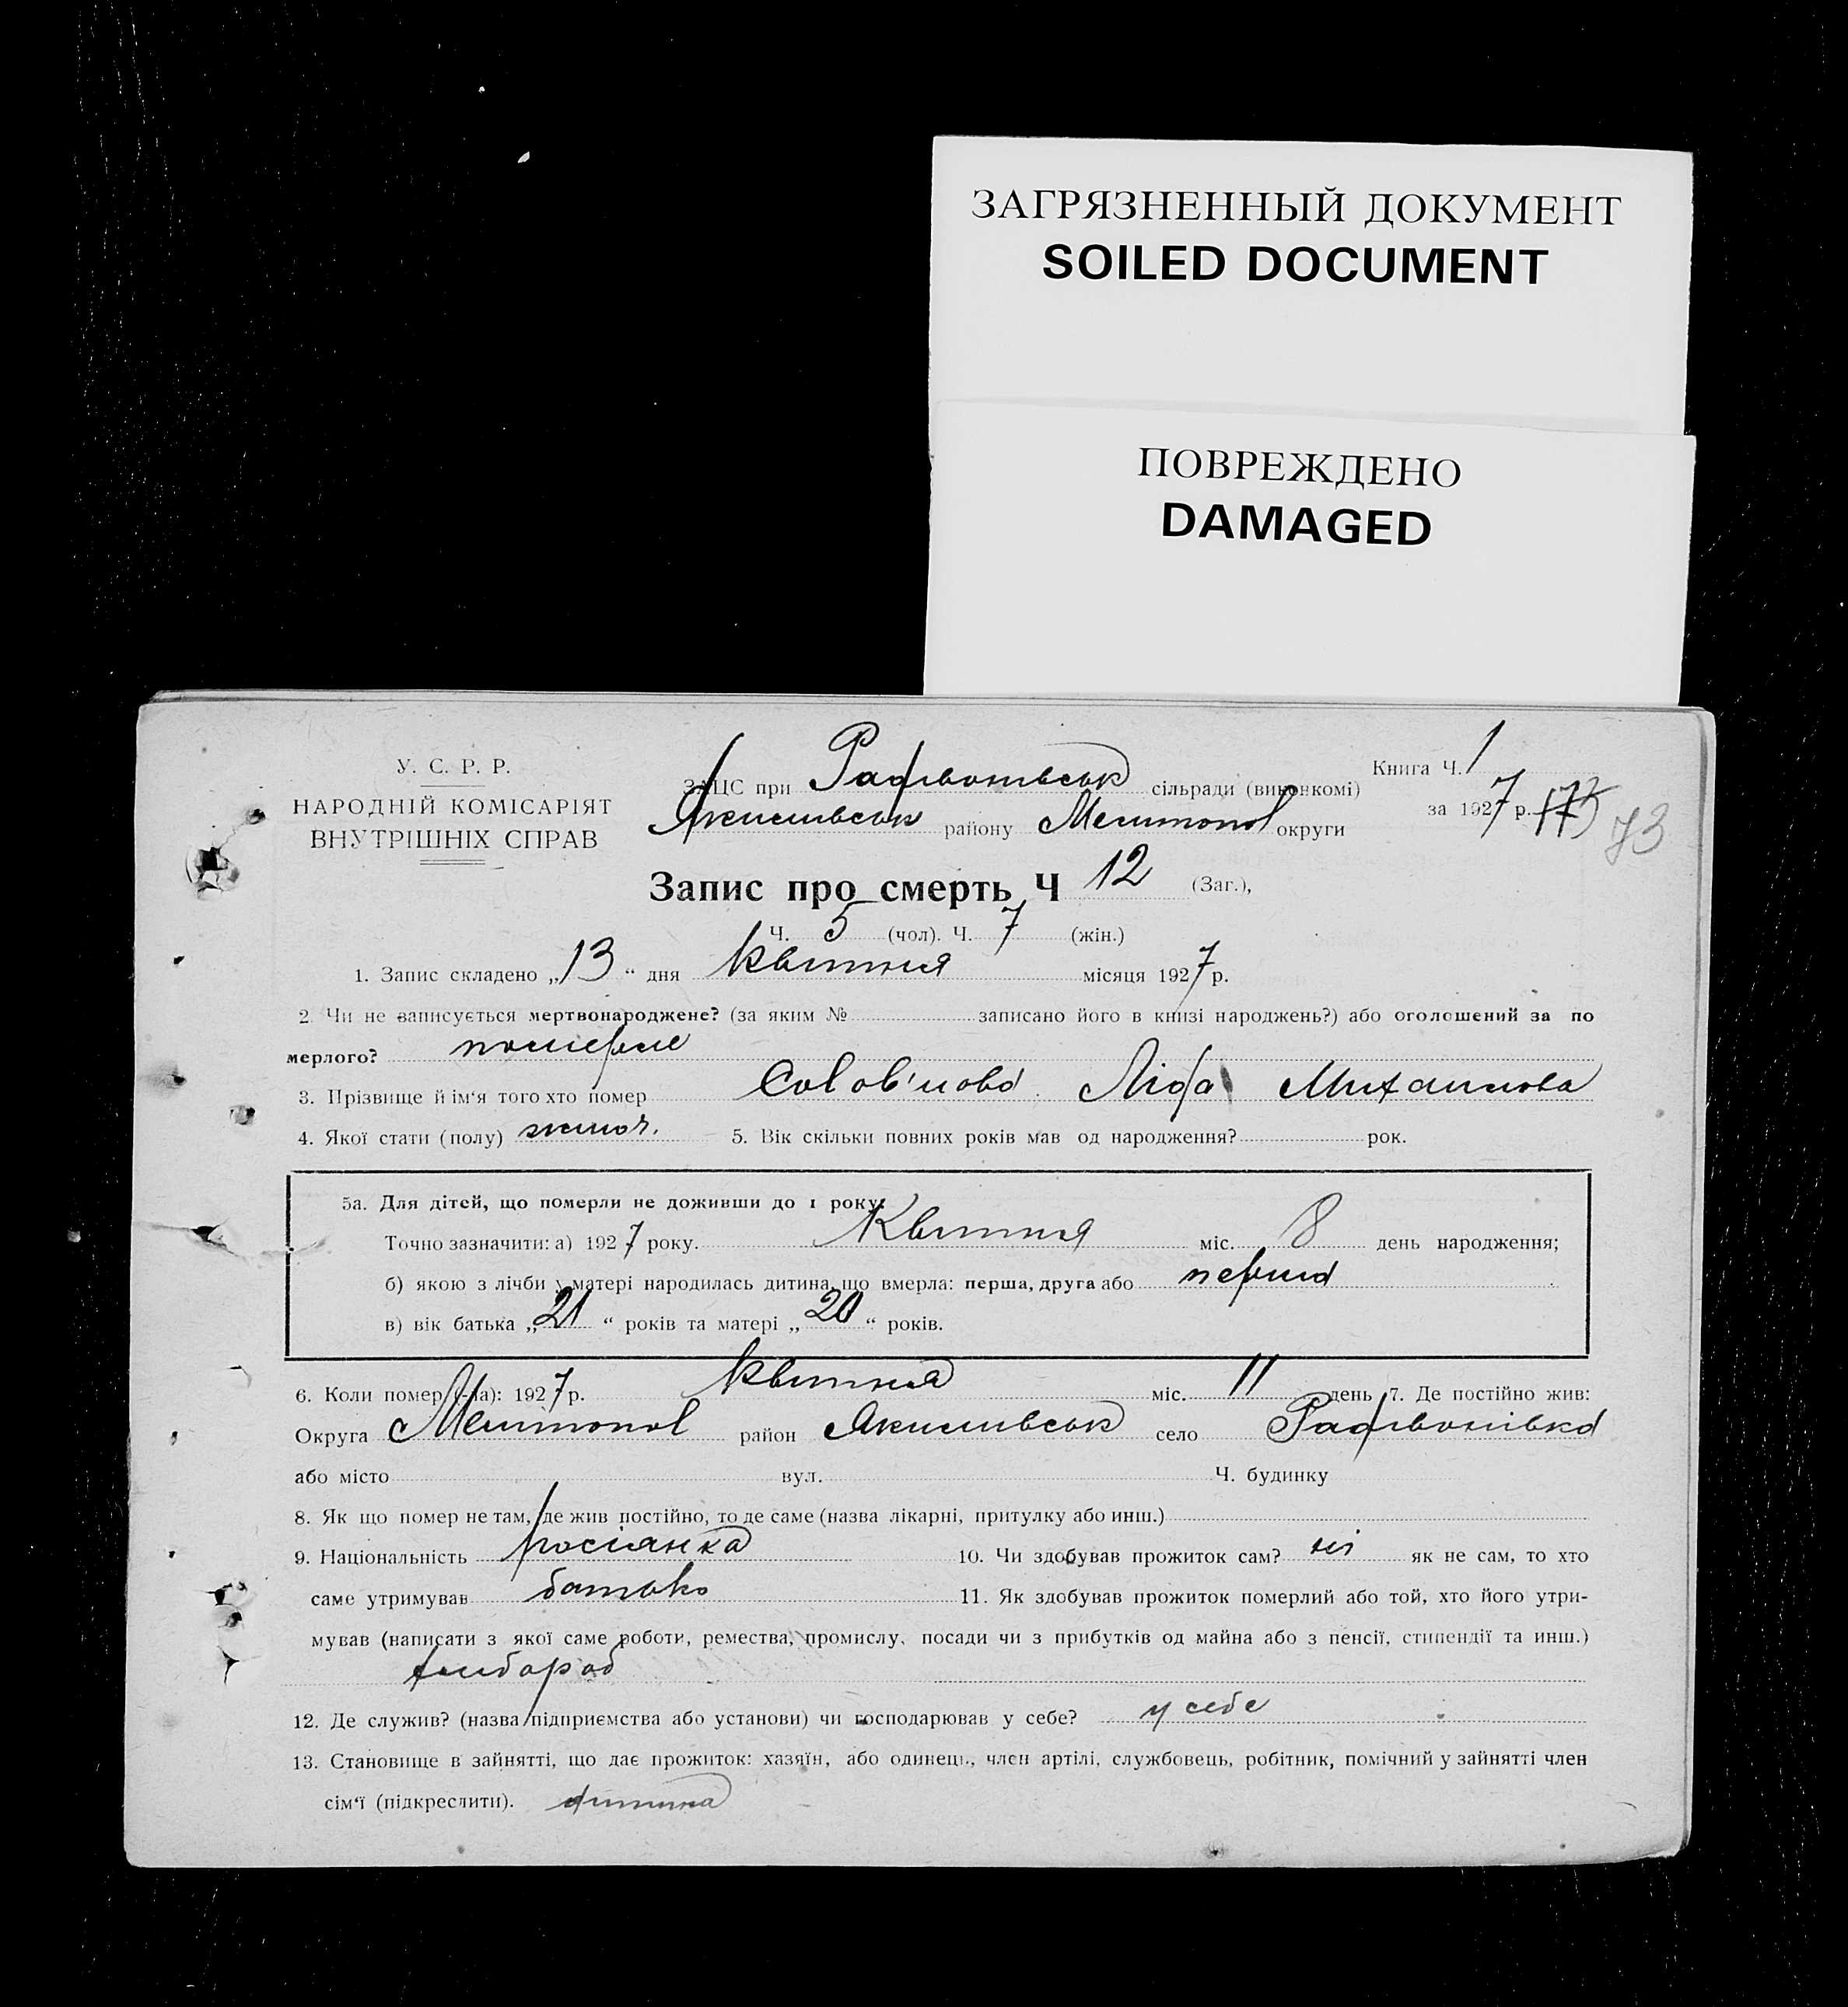 ЗАГРЯЗНЕННЫЙ ДОКУМЕНТ
SOILED DOCUMENT
ПОВРЕЖДЕНО
DAMAGED
У. С. Р. Р.
НАРОДНІЙ КОМІСАРІЯТ
ВНУТРІШНІХ СПРАВ
ЗАЦС при Радівонівськ сільради (виконкомі)
Якимівськ району Мелітопол округи
Книга Ч. 1
за 1927 р. 73
Запис про смерть Ч 12 (Заг.),
Ч. 5 (чол). Ч. 7 (жін.)
1. Запис складено „13“ дня Квітня місяця 1927 р.
2. Чи не записується мертвонароджене? (за яким № записано його в книзі народжень?) або оголошений за по
мерлого? померле
3. Прізвище й ім‘я того хто помер Солов'йова Ліда Михайлова
4. Якої стати (полу) жіноч. 5. Вік скільки повних років мав од народження? рок.
5а. Для дітей, що померли не доживши до 1 року:
Точно зазначити: а) 1927 року. Квітня міс. 8 день народження;
б) якою з лічби у матері народилась дитина, що вмерла: перша, друга або перша
в) вік батька „21“ років та матері „20“ років.
6. Коли помер (-ла): 1927 р. Квітня міс. 11 день 7. Де постійно жив:
Округа Мелітопол район Якимівськ село Радівонівка
або місто вул. Ч. будинку
8. Як що помер не там, де жив постійно, то де саме (назва лікарні, притулку або инш.)
9. Національність росіянка 10. Чи здобував прожиток сам? ні як не сам, то хто
саме утримував батько 11. Як здобував прожиток померлий або той, хто його утри-
мував (написати з якої саме роботи, ремества, промислу, посади чи з прибутків од майна або з пенсії, стипендії та инш.)
хлібороб
12. Де служив? (назва підприємства або установи) чи господарював у себе? у себе
13. Становище в зайнятті, що дає прожиток: хазяїн, або одинець, член артілі, службовець, робітник, помічний у зайнятті член
сім‘ї (підкреслити). дитина